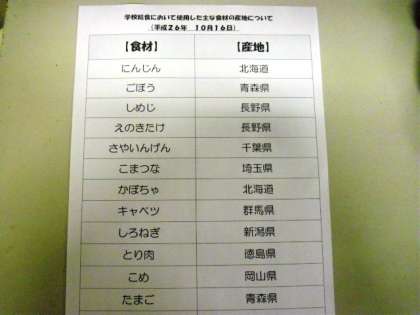 学校給食において使用した主な食材の産地について
（平成26年　10月16日）
【食材】 【産地】
にんじん 北海道
ごぼう 青森県
しめじ 長野県
えのきたけ 長野県
さやいんげん 千葉県
こまつな 埼玉県
かぼちゃ 北海道
キャベツ 群馬県
しろねぎ 新潟県
とり肉 徳島県
こめ 岡山県
たまご 青森県